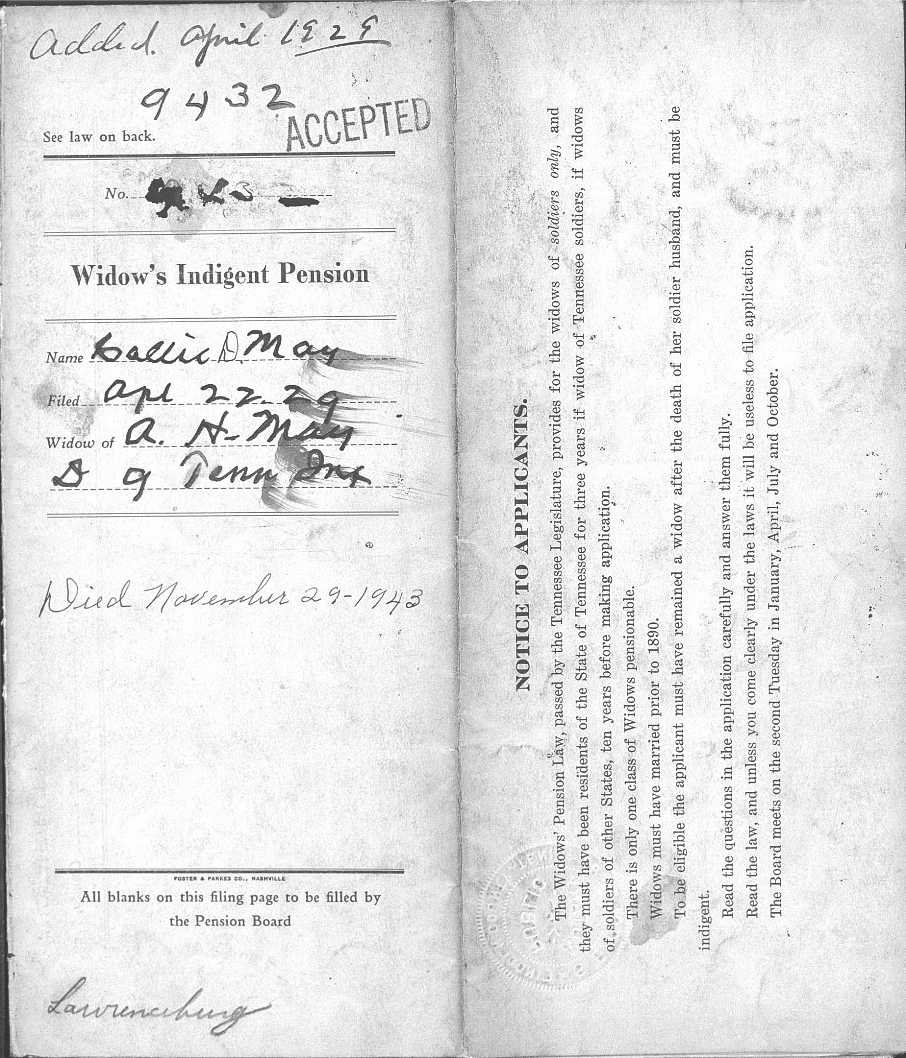 Added. April 1929
9432
ACCEPTED
See law on back.
No.
Widow's Indigent Pension
Name Callie D May
Filed Apl 22 - 29
Widow of A. H - May
D 9 Tenn Inf
Died November 29-1943
FOSTER & PARKES CO., NASHVILLE
All blanks on this filing page to be filled by
the Pension Board
Lawrenceburg
NOTICE TO APPLICANTS.
The Widows' Pension Law, passed by the Tennessee Legislature, provides for the widows of soldiers only, and
they must have been residents of the State of Tennessee for three years if widow of Tennessee soldiers, if widows
of soldiers of other States, ten years before making application.
There is only one class of Widows pensionable.
Widows must have married prior to 1890.
To be eligible the applicant must have remained a widow after the death of her soldier husband, and must be
indigent.
Read the questions in the application carefully and answer them fully.
Read the law, and unless you come clearly under the laws it will be useless to file application.
The Board meets on the second Tuesday in January, April, July and October.